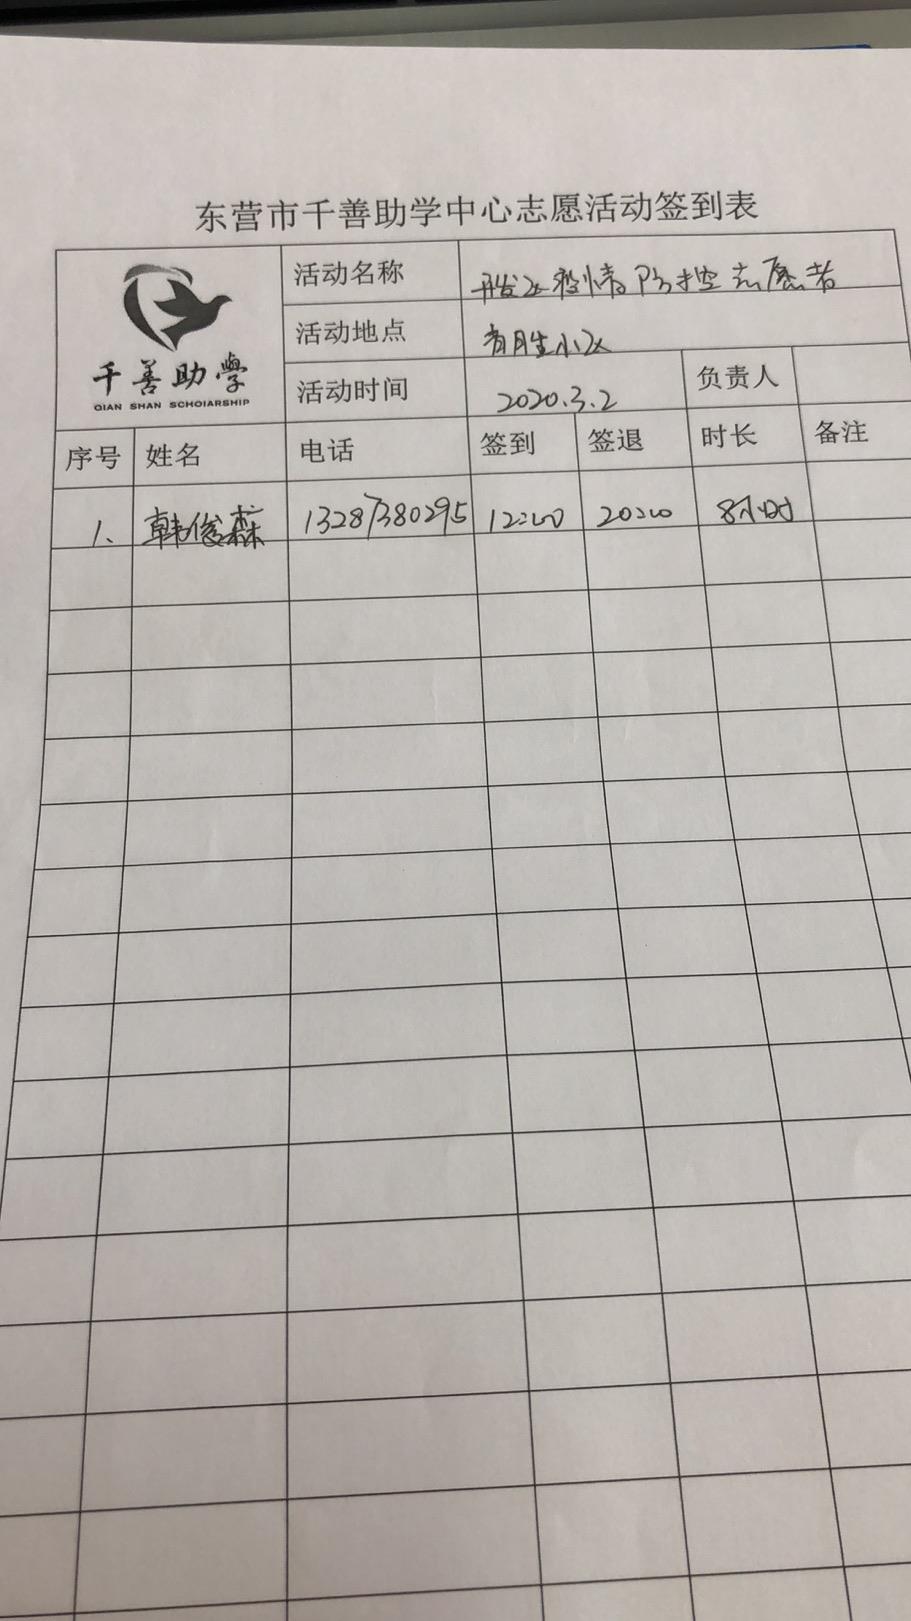 东营市千善助学中心志愿活动签到表
千善助學
QIAN SHAN SCHOIARSHIP
活动名称 开发区疫情防控志愿者
活动地点 胜小区
活动时间 2020.3.2 负责人
序号 姓名 电话 签到 签退 时长 备注
1. 韩俊霖 13287380295 12:00 20:00 8小时